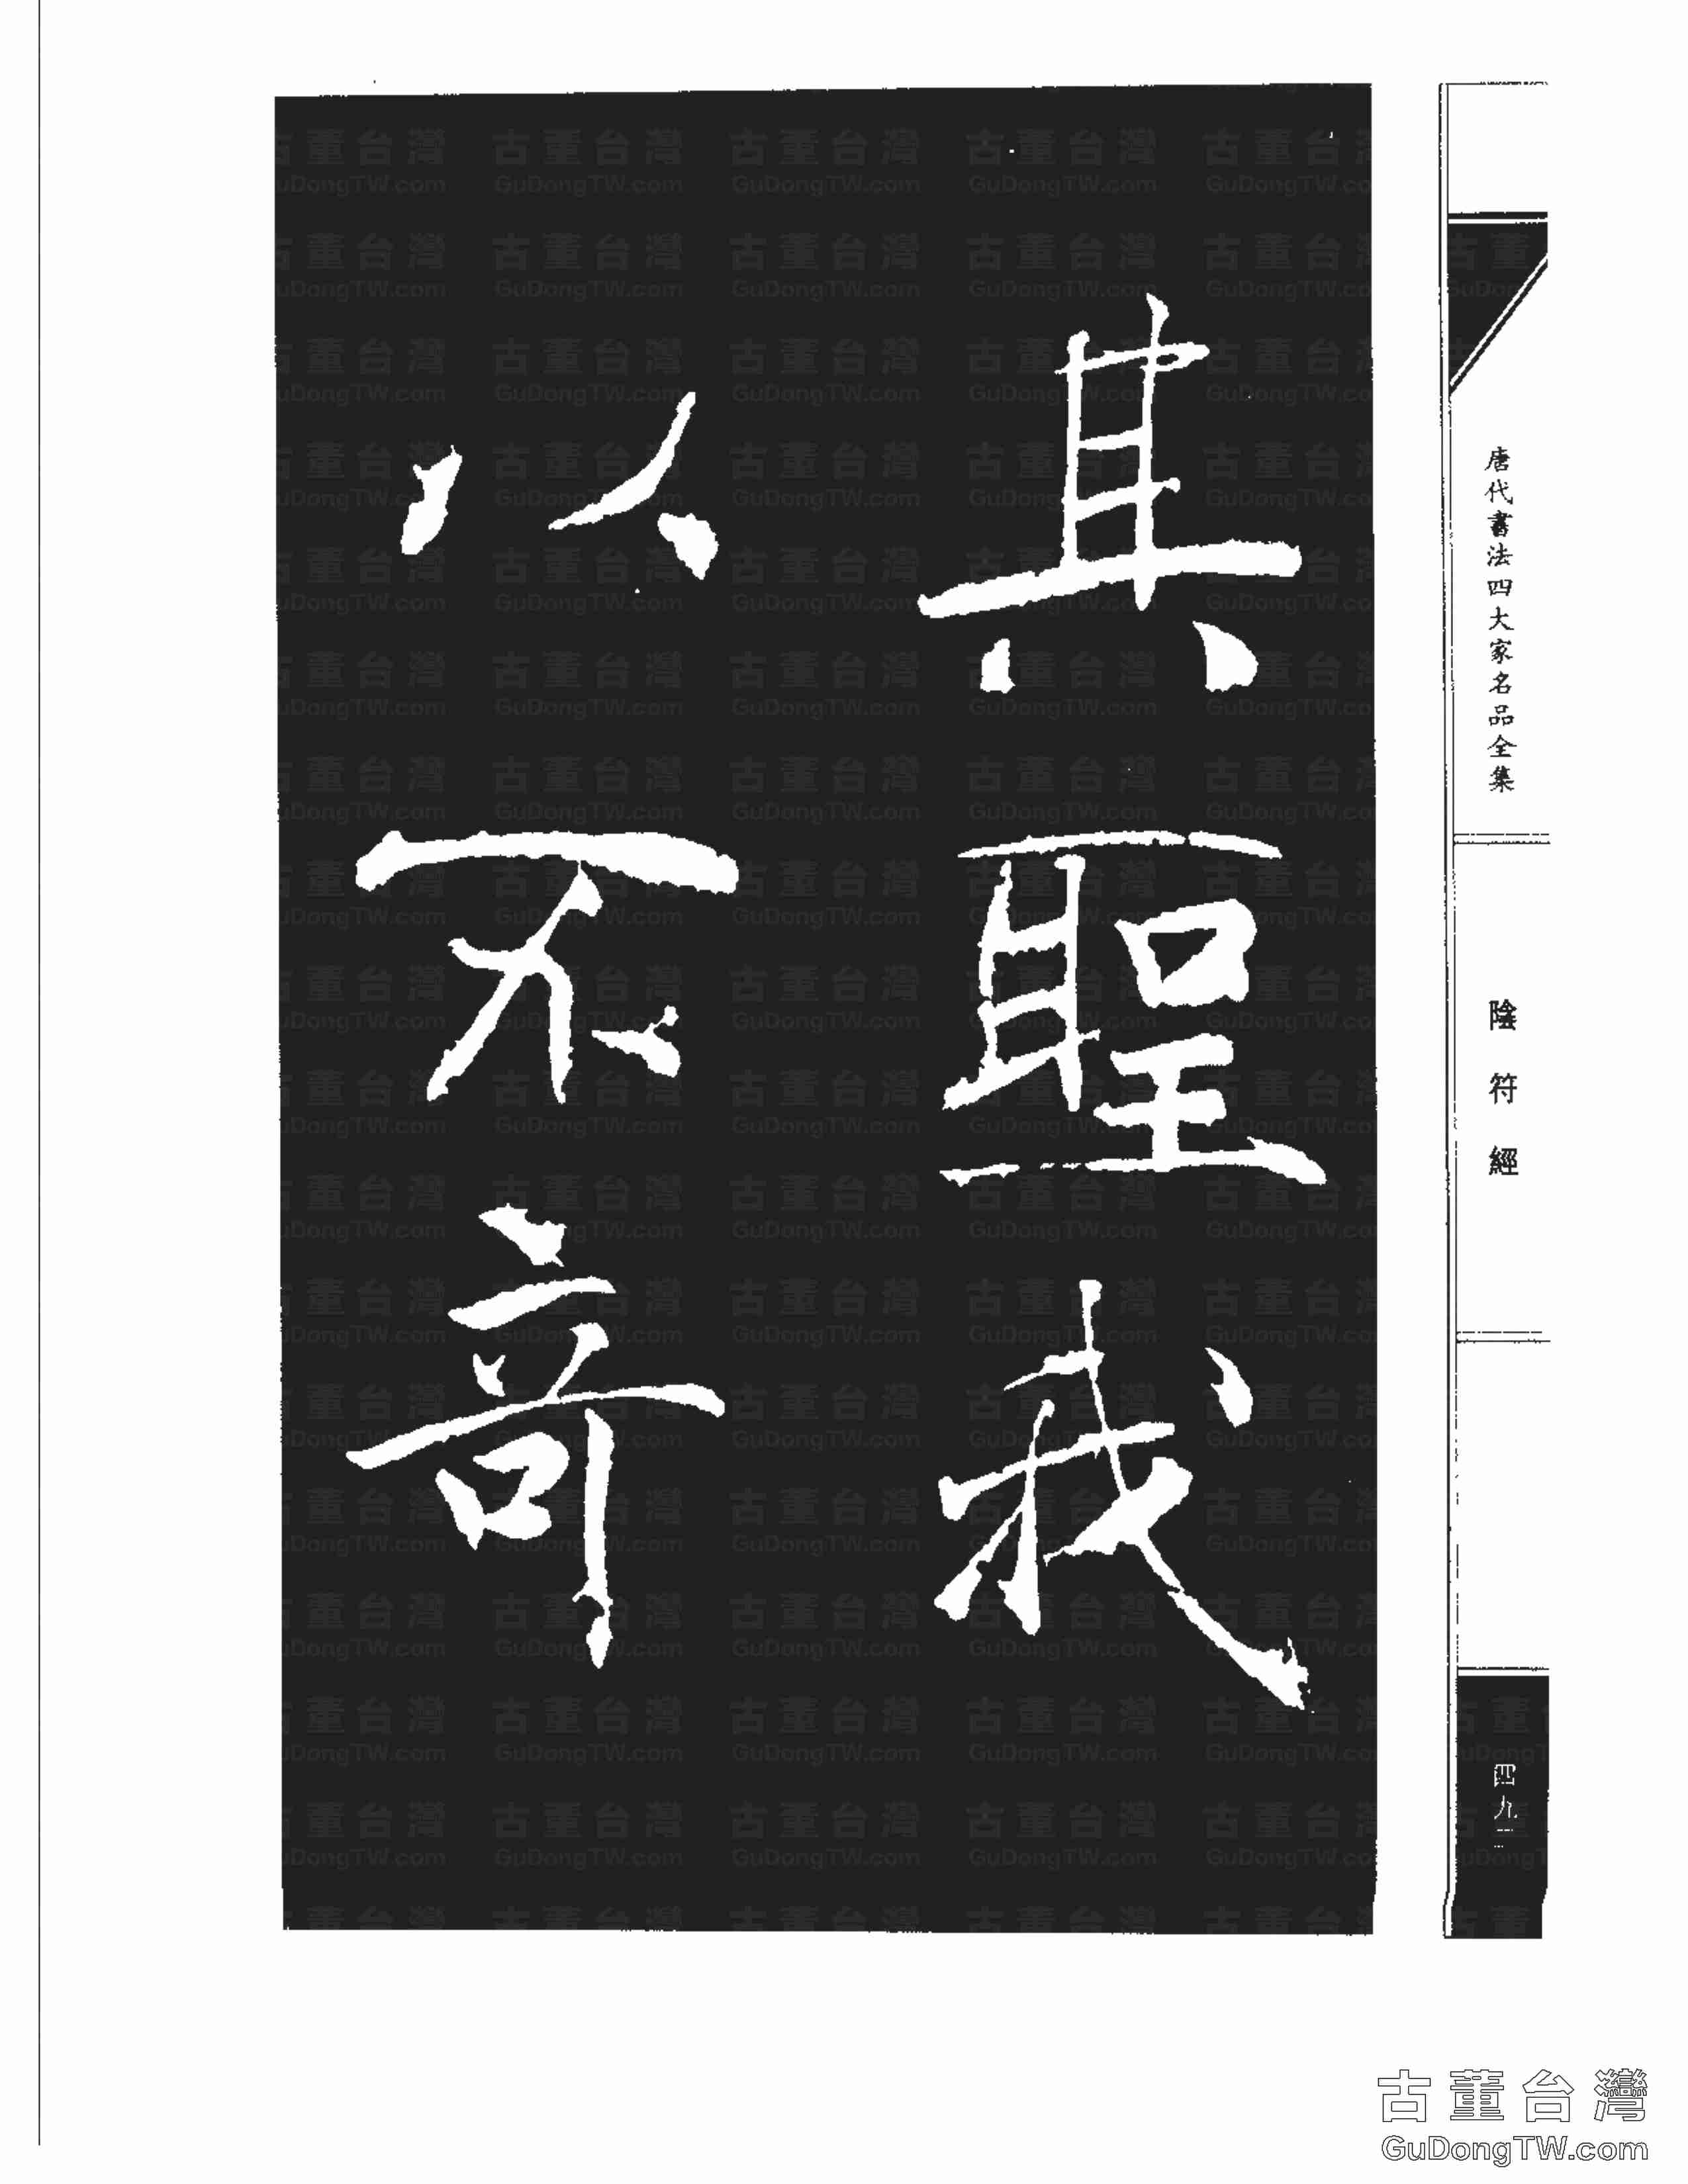 其聖我
以不奇
唐代書法四大家名品全集
陰符經
古董台灣
GuDongTW.com